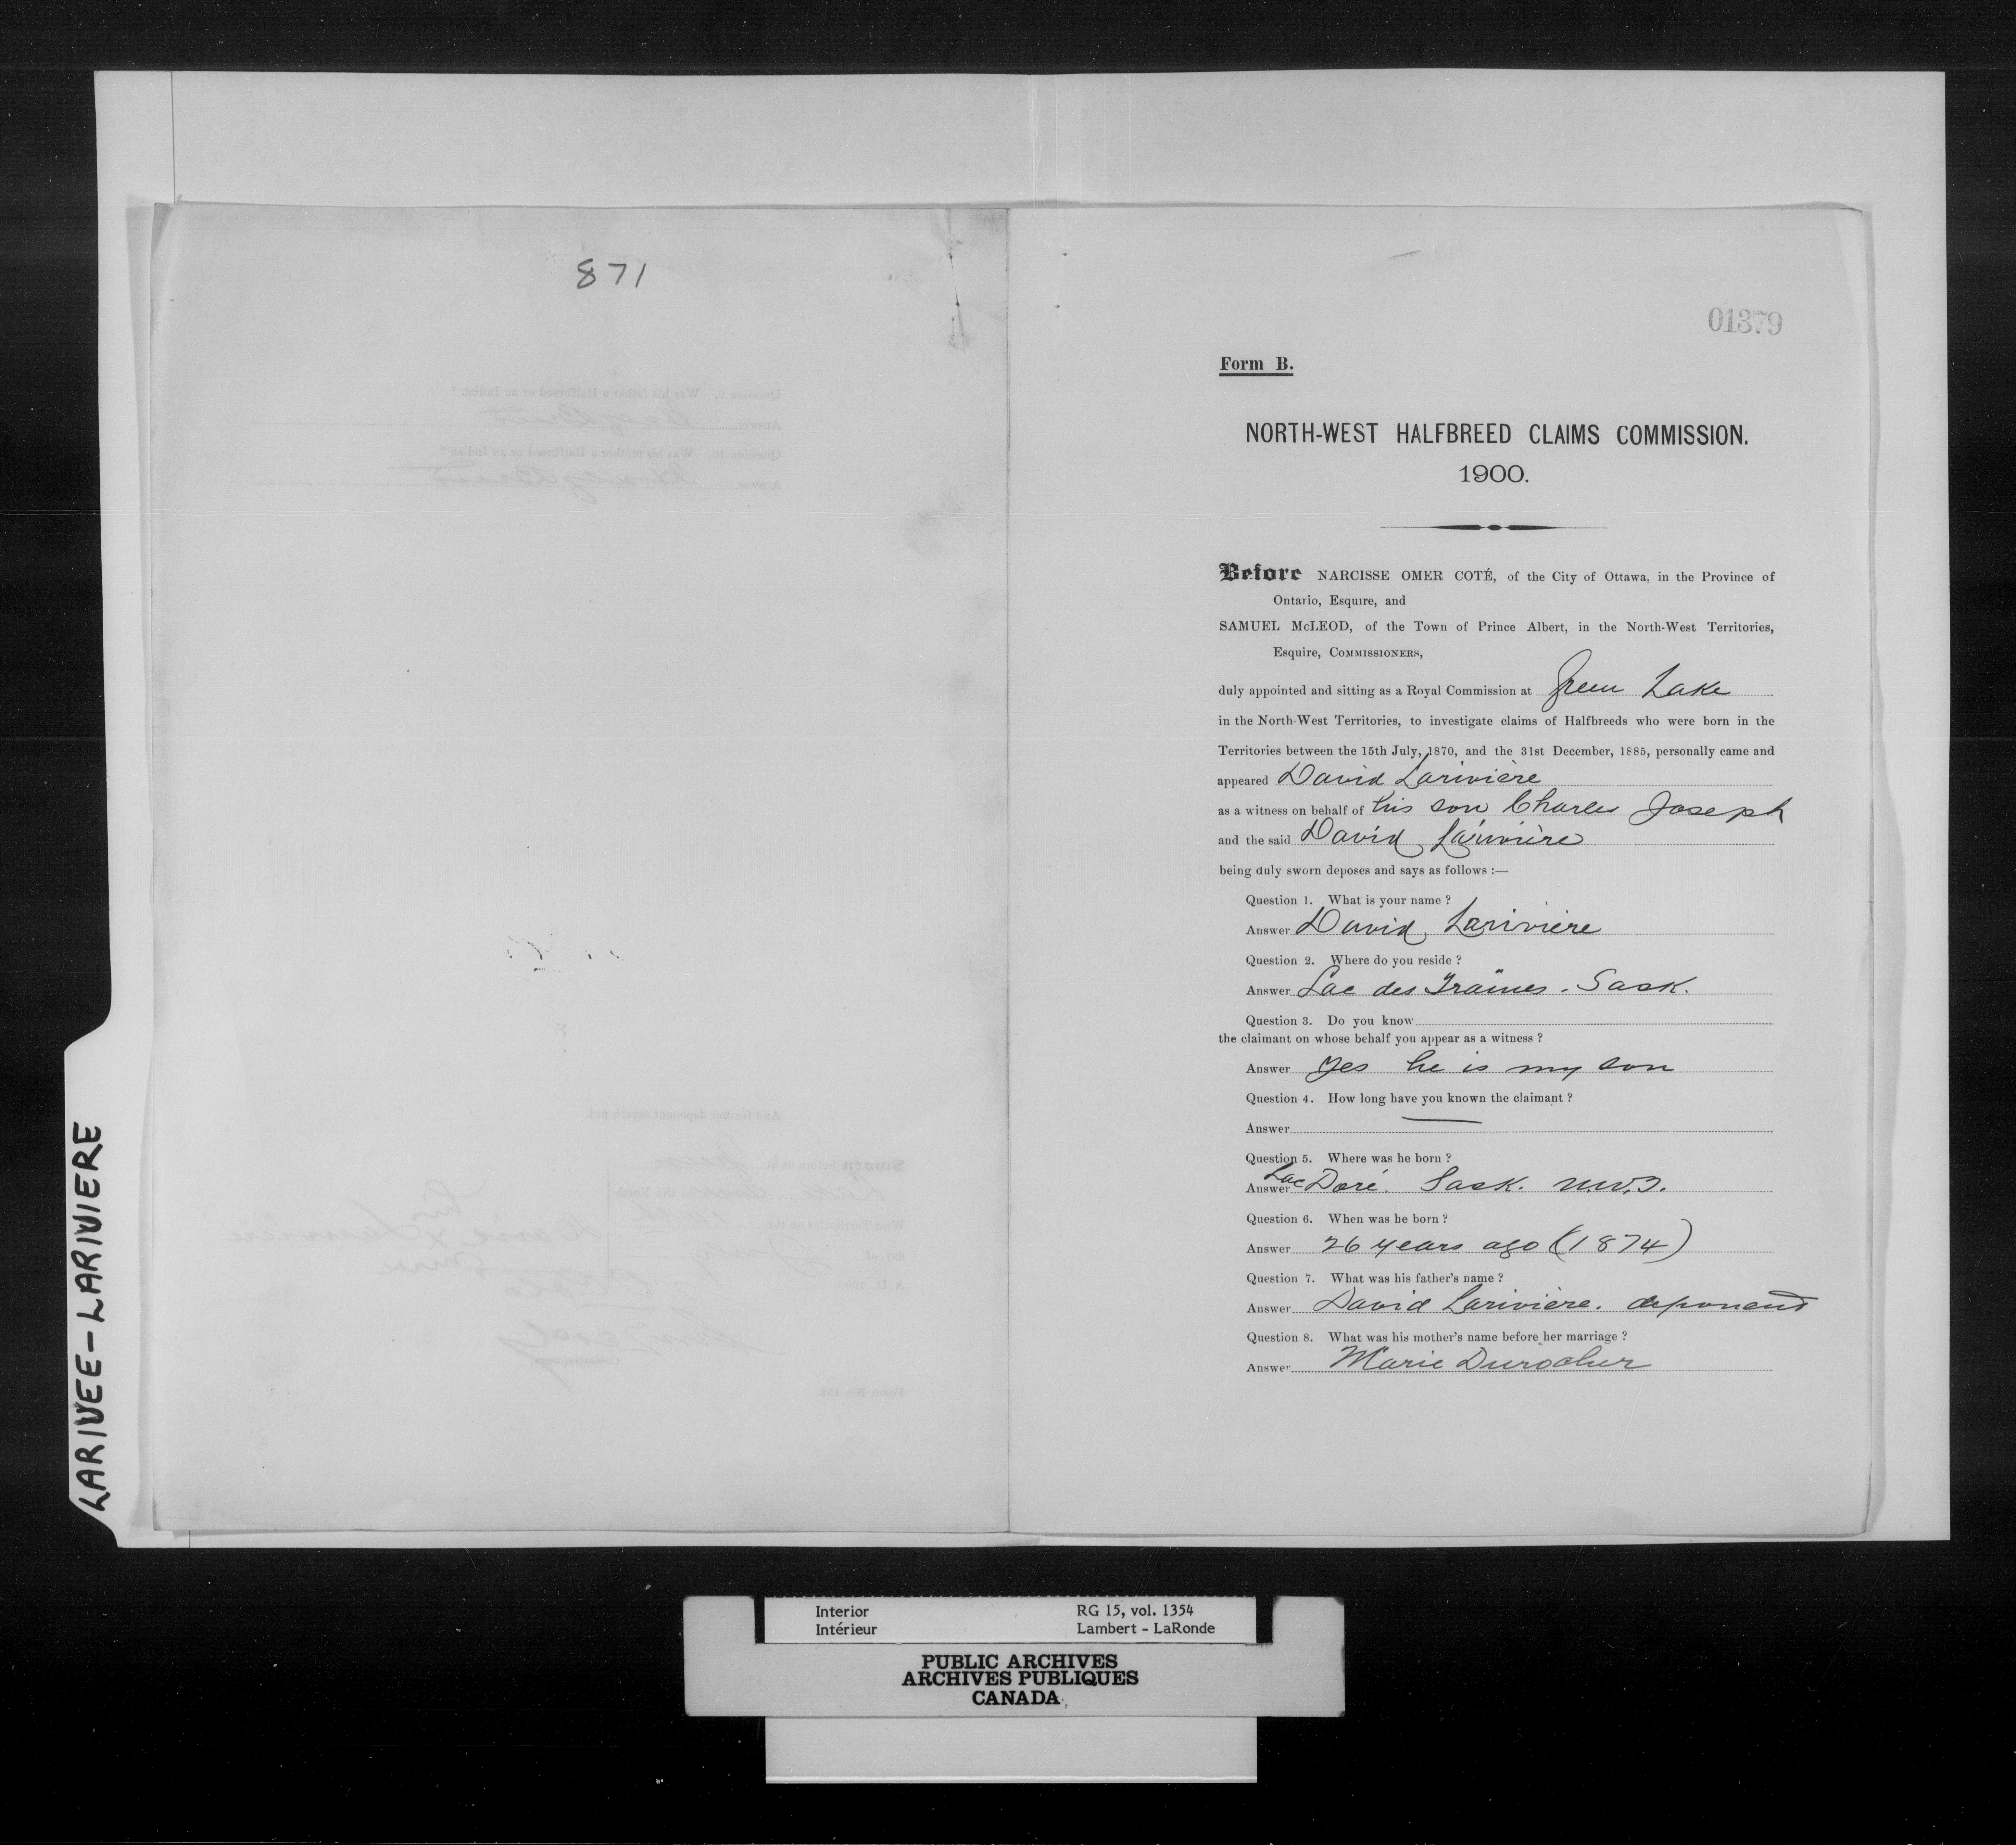 871
01379
Form B.
NORTH-WEST HALFBREED CLAIMS COMMISSION.
1900.
Before NARCISSE OMER COTÉ, of the City of Ottawa, in the Province of
Ontario, Esquire, and
SAMUEL McLEOD, of the Town of Prince Albert, in the North-West Territories,
Esquire, COMMISSIONERS,
duly appointed and sitting as a Royal Commission at Green Lake
in the North-West Territories, to investigate claims of Halfbreeds who were born in the
Territories between the 15th July, 1870, and the 31st December, 1885, personally came and
appeared David Larivière
as a witness on behalf of his son Charles Joseph
and the said David Larivière
being duly sworn deposes and says as follows :—
Question 1. What is your name ?
Answer David Lariviere
Question 2. Where do you reside ?
Answer Lac des Sask.
Question 3. Do you know
the claimant on whose behalf you appear as a witness ?
Answer Yes he is my son
Question 4. How long have you known the claimant ?
Answer —
Question 5. Where was he born ?
Answer Lac Doré. Sask. N.W.T.
Question 6. When was he born ?
Answer 26 years ago (1874)
Question 7. What was his father's name ?
Answer David Lariviere. deponent
Question 8. What was his mother's name before her marriage ?
Answer Marie Durocher
LARIVEE-LARIVIERE
Interior RG 15, vol. 1354
Intérieur Lambert - LaRonde
PUBLIC ARCHIVES
ARCHIVES PUBLIQUES
CANADA